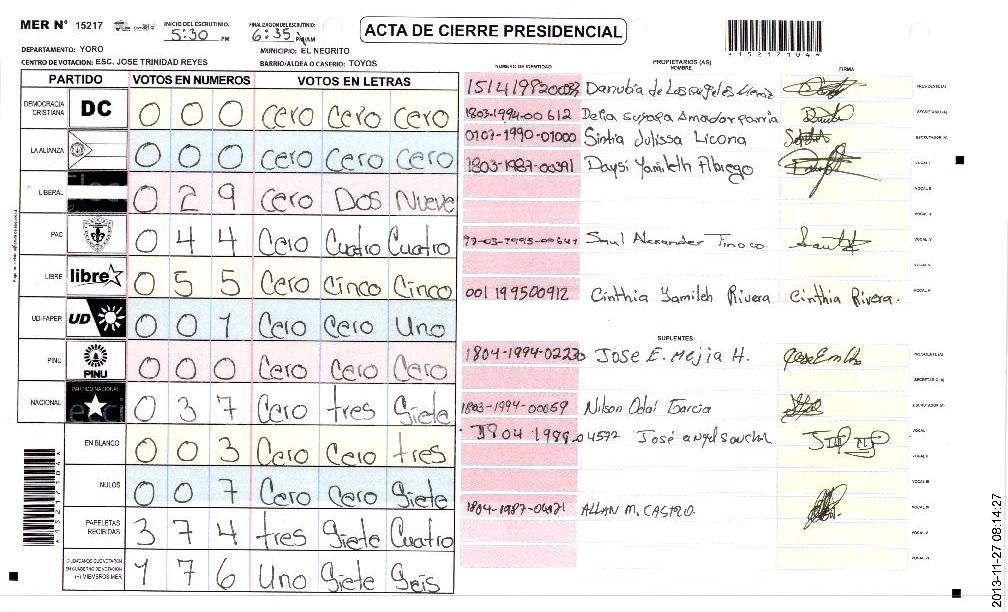 MER N° 15217
INICIO DEL ESCRUTINIO: 5:30 PM
FINALIZACION DEL ESCRUTINIO: 6:35 PM/AM
ACTA DE CIERRE PRESIDENCIAL
*15217104*
DEPARTAMENTO: YORO
MUNICIPIO: EL NEGRITO
CENTRO DE VOTACION: ESC. JOSE TRINIDAD REYES
BARRIO/ALDEA O CASERIO: TOYOS
PARTIDO VOTOS EN NUMEROS VOTOS EN LETRAS
DEMOCRACIA CRISTIANA DC 0 0 0 Cero Cero Cero
LA ALIANZA 0 0 0 Cero Cero Cero
LIBERAL 0 2 9 Cero Dos Nueve
PAC 0 4 4 Cero Cuatro Cuatro
LIBRE libre 0 5 5 Cero Cinco Cinco
UD-FAPER UD 0 0 1 Cero Cero Uno
PINU PINU 0 0 0 Cero Cero Cero
NACIONAL PARTIDO NACIONAL 0 3 7 Cero tres Siete
EN BLANCO 0 0 3 Cero Cero tres
NULOS 0 0 7 Cero Cero Siete
PAPELETAS RECIBIDAS 3 7 4 tres Siete Cuatro
CIUDADANOS QUE VOTARON EN CUADERNO DE VOTACION (+) MIEMBROS MER 1 7 6 Uno Siete Seis
*15217104*
PROPIETARIOS (AS)
NUMERO DE IDENTIDAD NOMBRE FIRMA
Danubia de Los PRESIDENTE(A)
1803-1994-00612 SECRETARIO (A)
0107-1990-01000 Sintia Julissa Licona ESCRUTADOR (A)
1803-1987-00391 Daysi Yamileth VOCAL I
VOCAL II
VOCAL III
Saul Alexander Tinoco VOCAL IV
VOCAL V
001 199500912 Cinthia Yamileh Rivera Cinthia Rivera.
SUPLENTES
1804-1994-02230 Jose E. Mejia H. PRESIDENTE(A)
SECRETARIO (A)
1803-1994-00059 Nilson Odai Garcia ESCRUTADOR (A)
1804 1989-04572 José VOCAL I
VOCAL II
VOCAL III
1804-1987-04021 ALLAN M. CASTRO. VOCAL IV
VOCAL V
VOCAL VI
2013-11-27 08:14:27